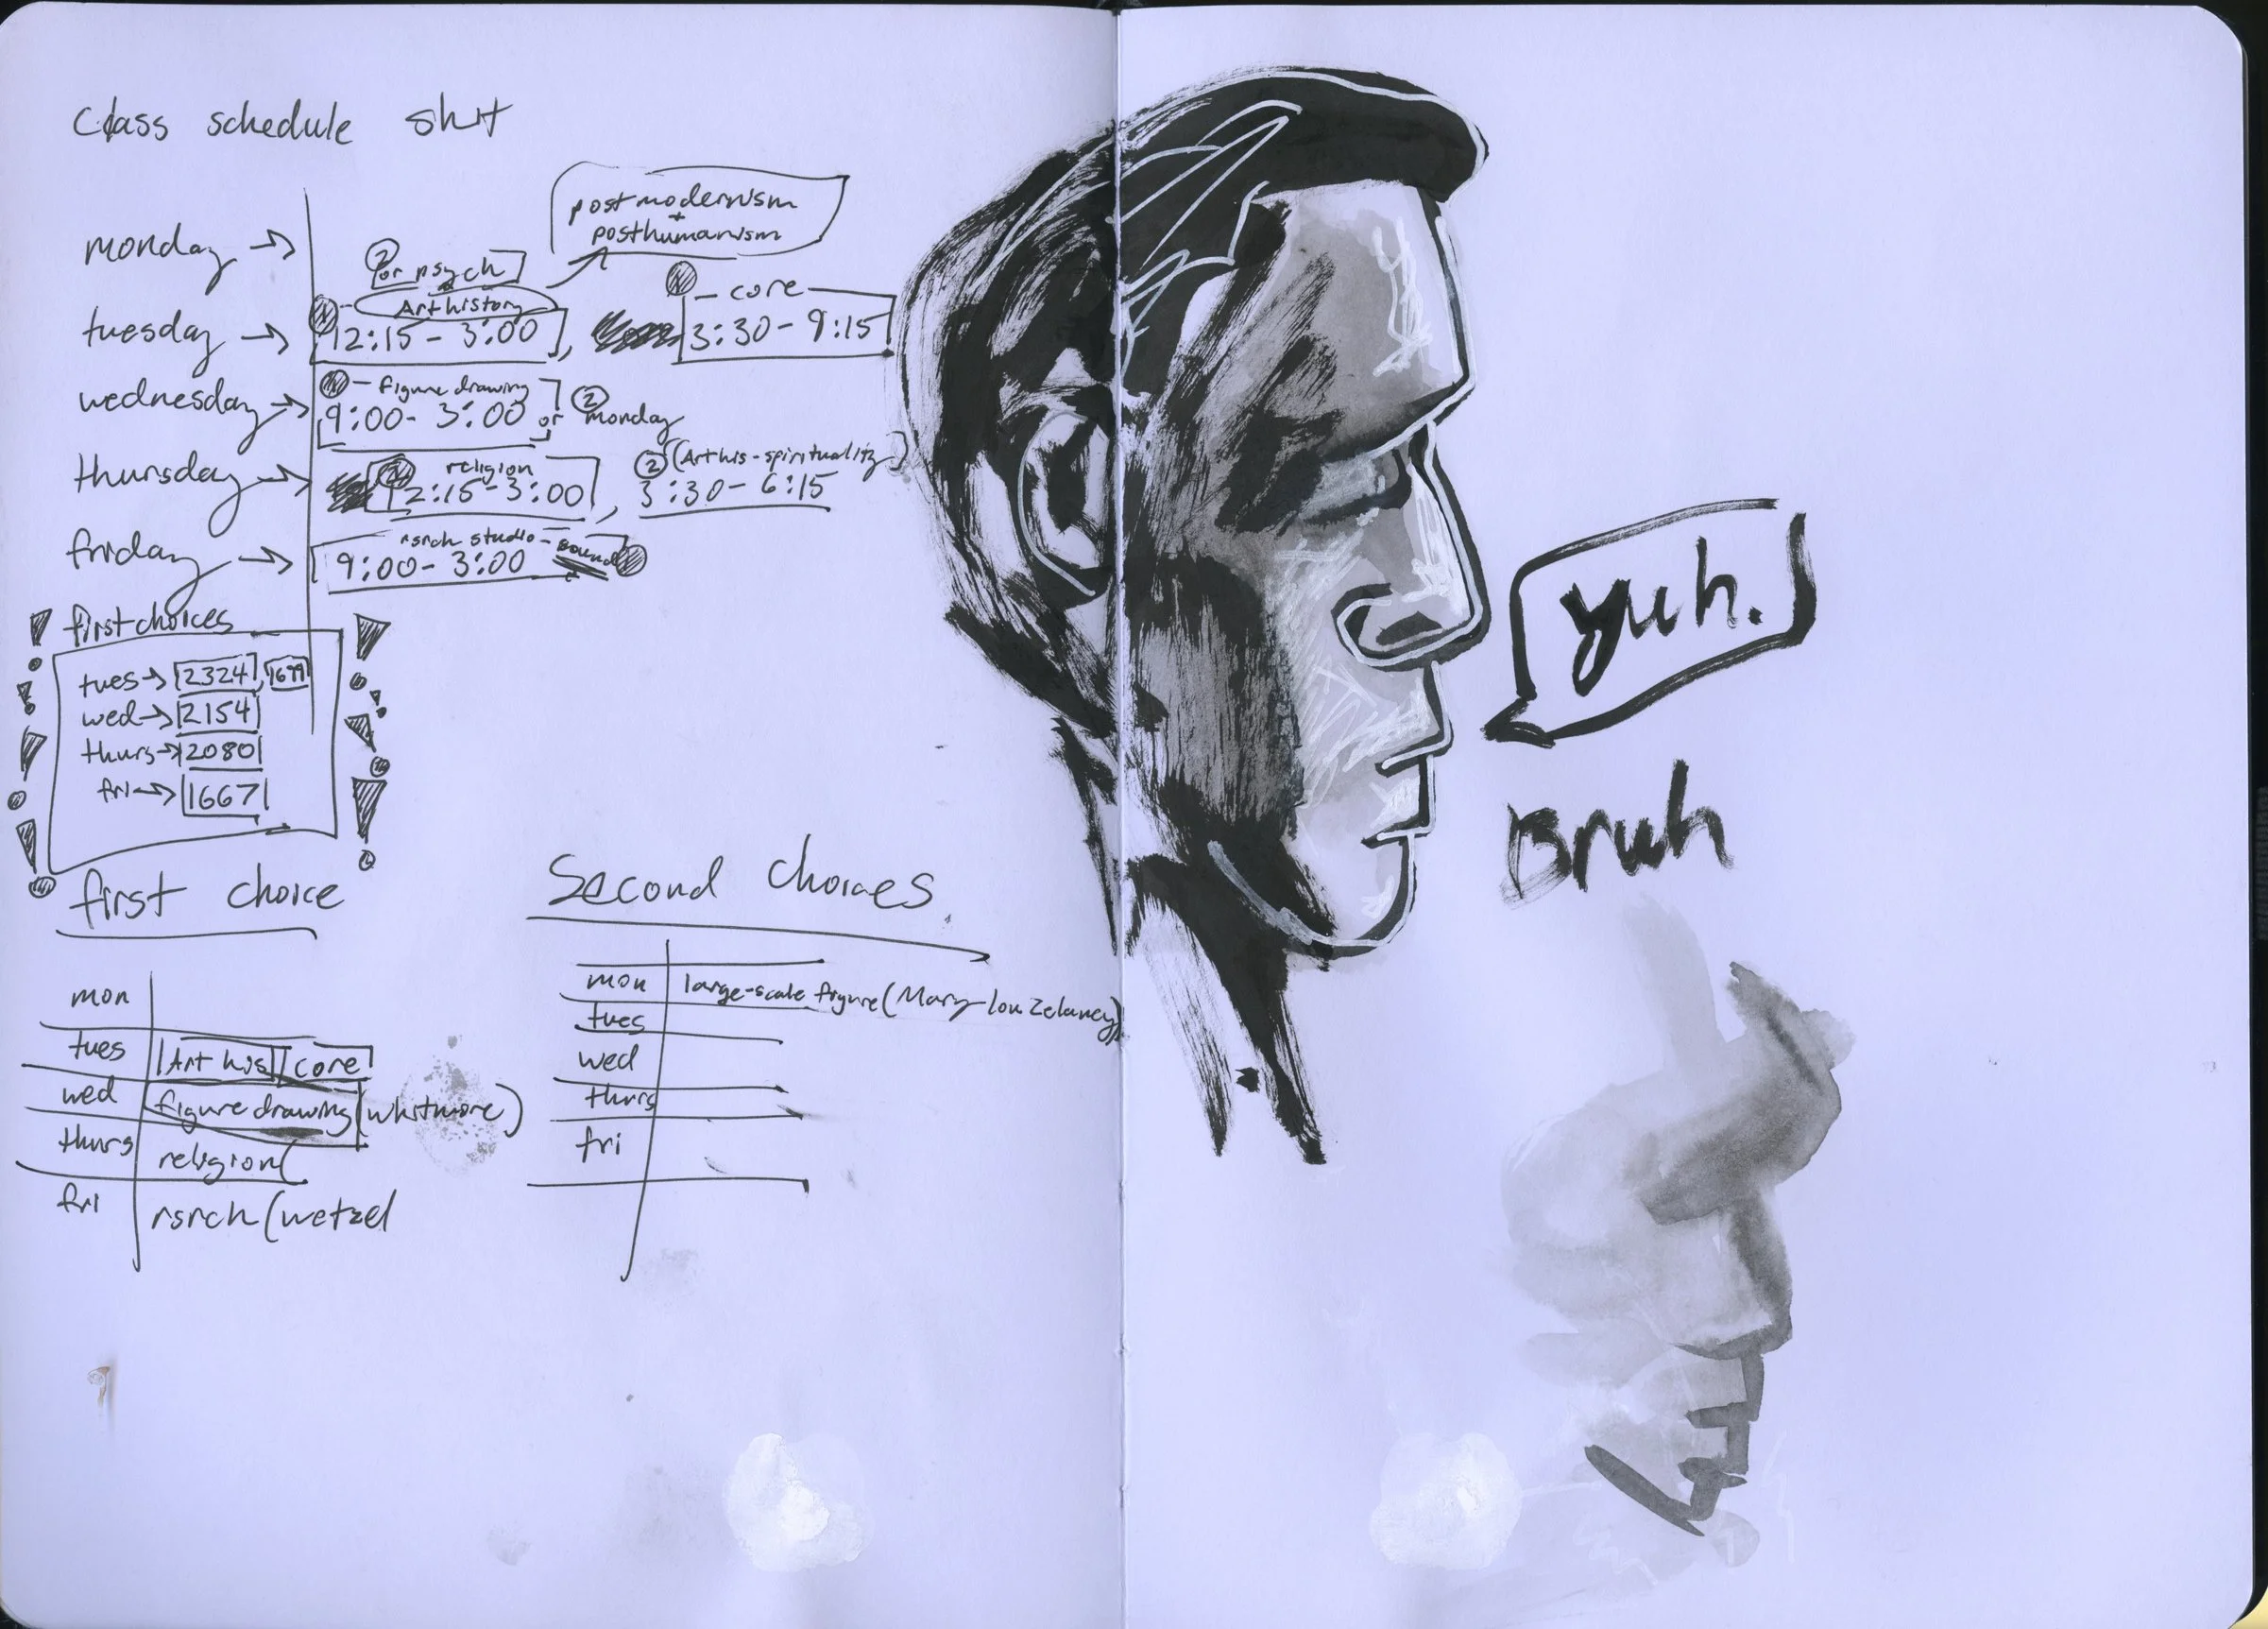 class schedule shit
postmodernism
+
posthumanism
monday →
② or psych
Art history
tuesday → 12:15 - 3:00,
- core -
3:30 - 9:15
wednesday →
- figure drawing
9:00 - 3:00 or ② monday
thursday →
religion
12:15 - 3:00,
② (Art his - spirituality)
3:30 - 6:15
friday →
rsrch studio - sound
9:00 - 3:00
first choices
tues → 2324, 1699
wed → 2154
thurs → 2080
fri → 1667
first choice
mon
tues Art his core
wed figure drawing (whitmore)
thurs religion (
fri rsrch (wetzel
Second choices
mon large-scale figure (Mary-Lou Zelaney)
tues
wed
thurs
fri
yuh.
Bruh